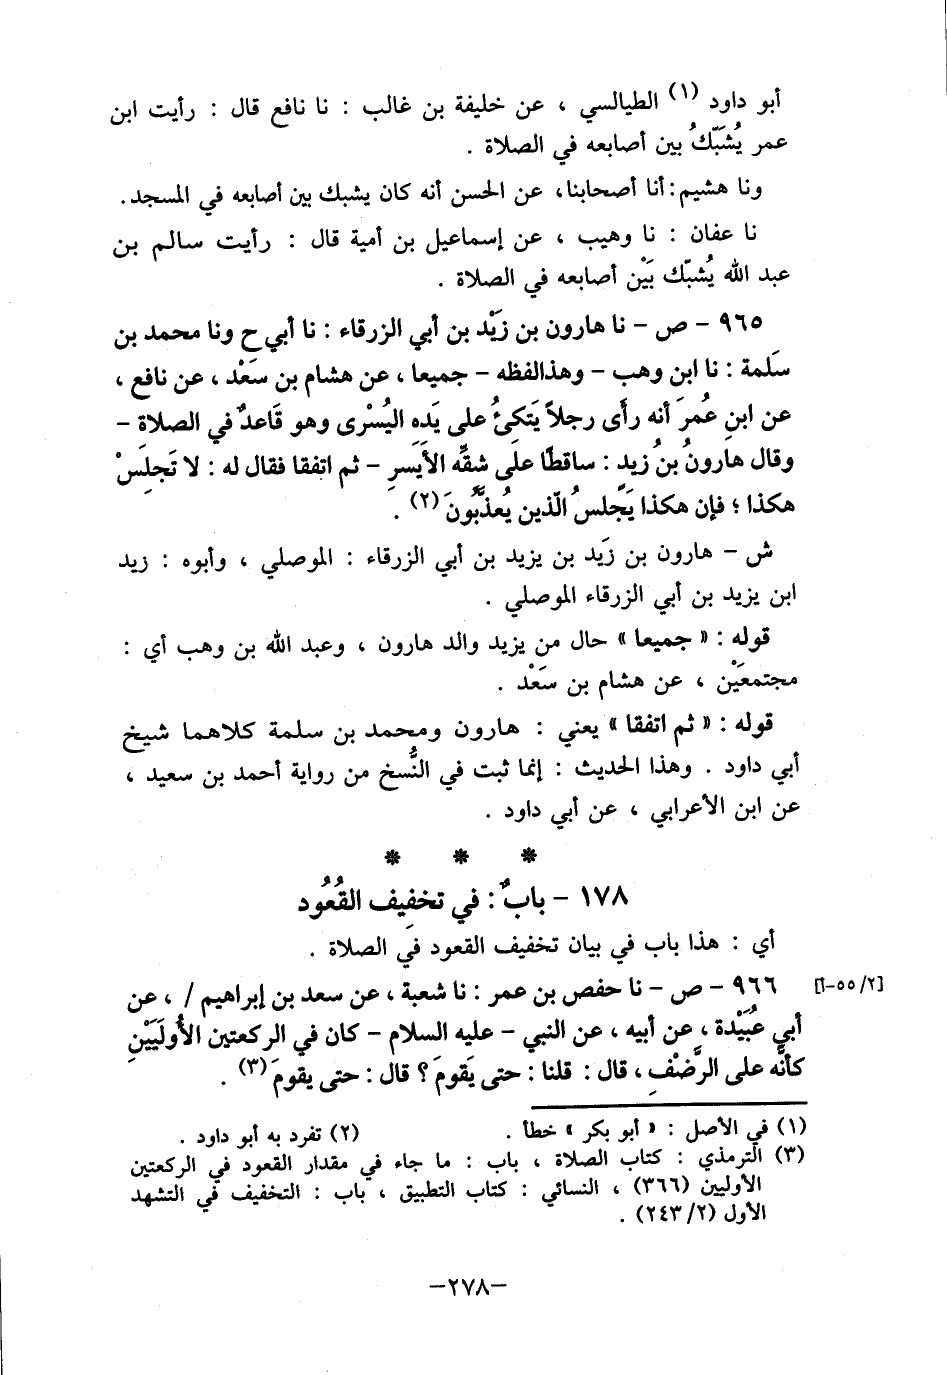 أبو داود (١) الطيالسي ، عن خليفة بن غالب : نا نافع قال : رأيت ابن
عمر يُشَبّكُ بين أصابعه في الصلاة .
ونا هشيم : أنا أصحابنا، عن الحسن أنه كان يشبك بين أصابعه في المسجد.
نا عفان : نا وهيب ، عن إسماعيل بن أمية قال : رأيت سالم بن
عبد الله يُشبّك بَيْن أصابعه في الصلاة .
٩٦٥ – ص – نا هارون بن زَيْد بن أبي الزرقاء : نا أبي ح ونا محمد بن
سَلمة : نا ابن وهب – وهذا لفظه – جميعا ، عن هشام بن سَعْد ، عن نافع ،
عن ابنِ عُمرَ أنه رأَى رجلاً يَتكئُ على يَده اليُسْرى وهو قَاعدٌ في الصلاة –
وقال هارونُ بنُ زيدٍ : ساقطًا على شقِّه الأيَسرِ – ثم اتفقا فقال له : لا تَجلِسْ
هكذا ؛ فإن هكذا يَجلسُ الّذين يُعذَّبُونَ (٢) .
ش – هارون بن زَيد بن يزيد بن أبي الزرقاء : الموصلي ، وأبوه : زيد
ابن يزيد بن أبي الزرقاء الموصلي .
قوله : « جميعا » حال من يزيد والد هارون ، وعبد الله بن وهب أي :
مجتمعَيْن ، عن هشام بن سَعْد .
قوله : « ثم اتفقا » يعني : هارون ومحمد بن سلمة كلاهما شيخ
أبي داود . وهذا الحديث : إنما ثبت في النُّسخ من رواية أحمد بن سعيد ،
عن ابن الأعرابي ، عن أبي داود .
* * *
١٧٨ – بابٌ : في تخفِيف القُعُود
أي : هذا باب في بيان تخفيف القعود في الصلاة .
٩٦٦ – ص – نا حفص بن عمر : نا شعبة ، عن سعد بن إبراهيم / ، عن [٢/ ٥٥-أ]
أبي عُبَيْدة ، عن أبيه ، عن النبي – عليه السلام – كان في الركعتين الأُولَيَيْنِ
كأنَّه على الرَّضْفِ ، قال : قلنا : حتى يَقومَ ؟ قال : حتى يقومَ (٣) .
(١) في الأصل : « أبو بكر » خطأ . (٢) تفرد به أبو داود .
(٣) الترمذي : كتاب الصلاة ، باب : ما جاء في مقدار القعود في الركعتين
الأوليين (٣٦٦) ، النسائي : كتاب التطبيق ، باب : التخفيف في التشهد
الأول (٢/ ٢٤٣) .
–٢٧٨–